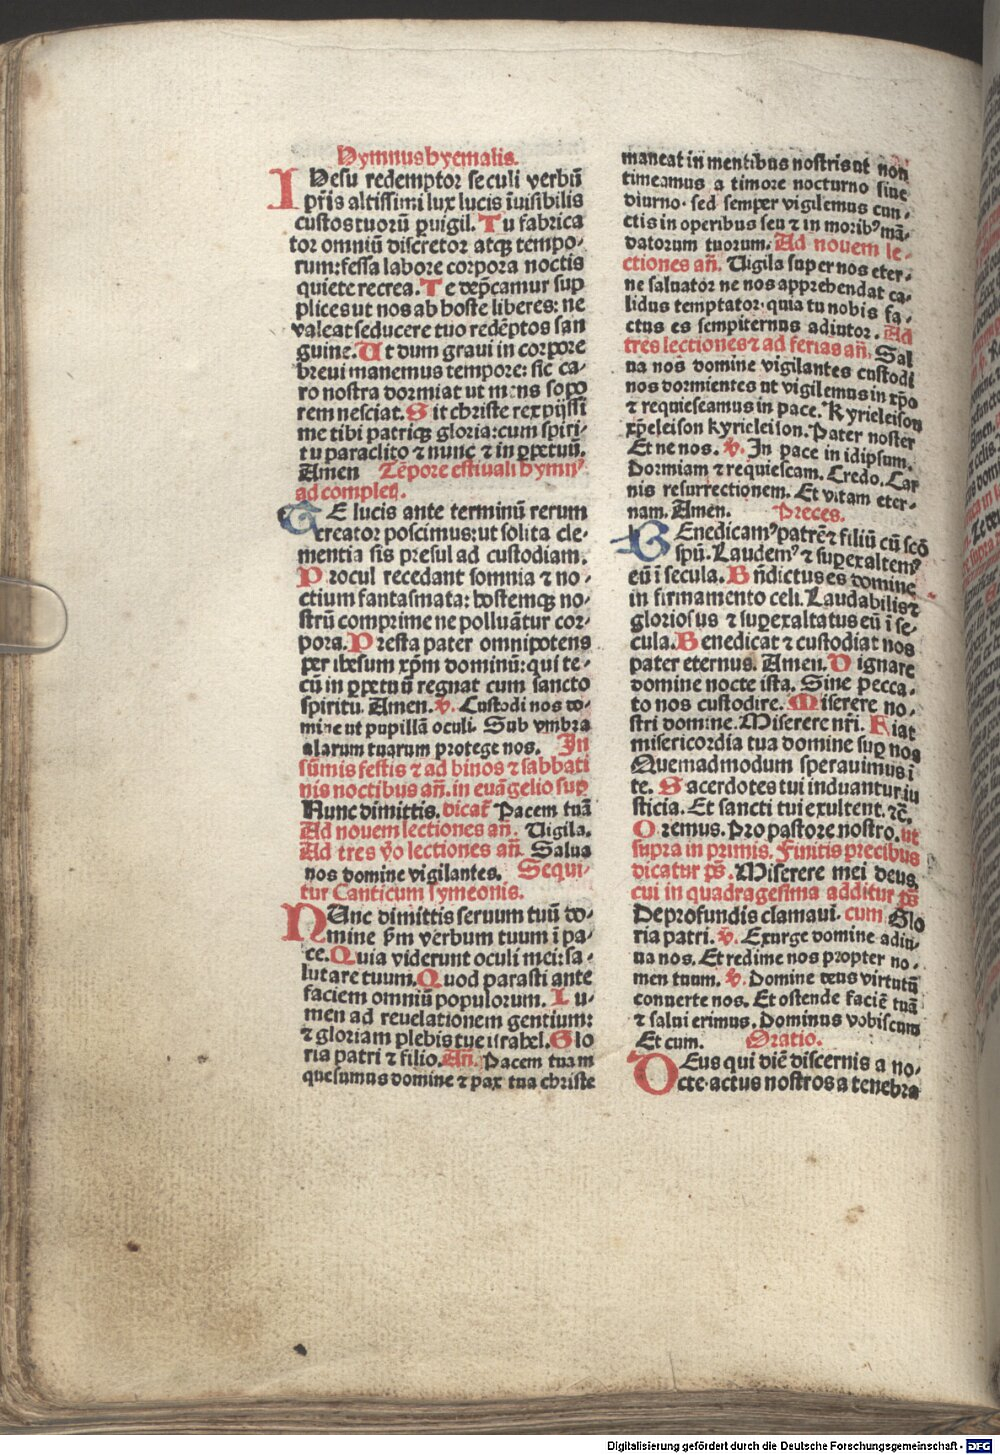 Hymnus hyemalis.
IHesu redemptor seculi verbū
pr̄is altissimi lux lucis īuisibilis
custos tuorū ꝑuigil. Tu fabrica
tor omniū discretor atqꝫ tempo⸗
rum: fessa labore corpora noctis
quiete recrea. Te dep̄camur sup
plices ut nos ab hoste liberes: ne
valeat seducere tuo redēptos san
guine. Ut dum graui in corpore
breui manemus tempore: sic ca⸗
ro nostra dormiat ut mens sopo
rem nesciat. Sit christe rex pijssi
me tibi patriqꝫ gloria: cum spiri⸗
tu paraclito ⁊ nunc ⁊ in ꝑpetuū.
Amen Tēpore estiuali hymnꝰ
ad complet̄.
TE lucis ante terminū rerum
creator poscimus: ut solita cle⸗
mentia sis presul ad custodiam.
Procul recedant somnia ⁊ no⸗
ctium fantasmata: hostemqꝫ no⸗
strū comprime ne polluātur cor⸗
pora. Presta pater omnipotens
per ihesum xp̄m dominū: qui te⸗
cū in ꝑpetuū regnat cum sancto
spiritu. Amen. v̄. Custodi nos do⸗
mine ut pupillā oculi. Sub vmbra
alarum tuarum protege nos. In
sūmis festis ⁊ ad binos ⁊ sabbati
nis noctibus an̄. in euāgelio suꝑ
Nunc dimittis. dicat̄ Pacem tuā
Ad nouem lectiones an̄. Uigila.
Ad tres v̄o lectiones an̄ Salua
nos domine vigilantes. Sequi⸗
tur Canticum symeonis.
NUnc dimittis seruum tuū do⸗
mine ẜm verbum tuum ī pa⸗
ce. Quia viderunt oculi mei: sa⸗
lutare tuum. Quod parasti ante
faciem omniū populorum. Lu⸗
men ad reuelationem gentium:
⁊ gloriam plebis tue israhel. Glo
ria patri ⁊ filio. An̄. Pacem tuam
quesumus domine ⁊ pax tua christe
maneat in mentibus nostris ut non
timeamus a timore nocturno siue
diurno. sed semper vigilemus cun⸗
ctis in operibus seu ⁊ in moribꝰ mā⸗
datorum tuorum. Ad nouem le⸗
ctiones an̄. Uigila super nos eter⸗
ne saluator ne nos apprehendat ca⸗
lidus temptator. quia tu nobis fa⸗
ctus es sempiternus adiutor. Ad
tres lectiones ⁊ ad ferias an̄. Sal
ua nos domine vigilantes custodi
nos dormientes ut vigilemus in xp̄o
⁊ requiescamus in pace. Kyrieleison
xp̄eleison kyrieleison. Pater noster
Et ne nos. v̄. In pace in idipsum.
Dormiam ⁊ requiescam. Credo. Car
nis resurrectionem. Et vitam eter⸗
nam. Amen. Preces.
BEnedicamꝰ patrē ⁊ filiū cū scō
spū. Laudemꝰ ⁊ suꝑexaltemꝰ
eū ī secula. Bn̄dictus es domine
in firmamento celi. Laudabilis ⁊
gloriosus ⁊ suꝑexaltatus eū ī se⸗
cula. Benedicat ⁊ custodiat nos
pater eternus. Amen. Dignare
domine nocte ista. Sine pecca⸗
to nos custodire. Miserere no⸗
stri domine. Miserere nr̄i. Fiat
misericordia tua domine suꝑ nos
Quemadmodum sperauimus ī
te. Sacerdotes tui induantur iu
sticia. Et sancti tui exultent. ⁊c̄.
Oremus. Pro pastore nostro. ut
supra in primis. Finitis precibus
dicatur ps̄. Miserere mei deus.
cui in quadragesima additur ps̄
De profundis clamaui. cum Glo
ria patri. v̄. Exurge domine adiu⸗
ua nos. Et redime nos propter no⸗
men tuum. v̄. Domine deus virtutū
conuerte nos. Et ostende faciē tuā
⁊ salui erimus. Dominus vobiscum
Et cum. Oratio.
DEus qui diē discernis a no⸗
cte. actus nostros a tenebra
Digitalisierung gefördert durch die Deutsche Forschungsgemeinschaft - DFG